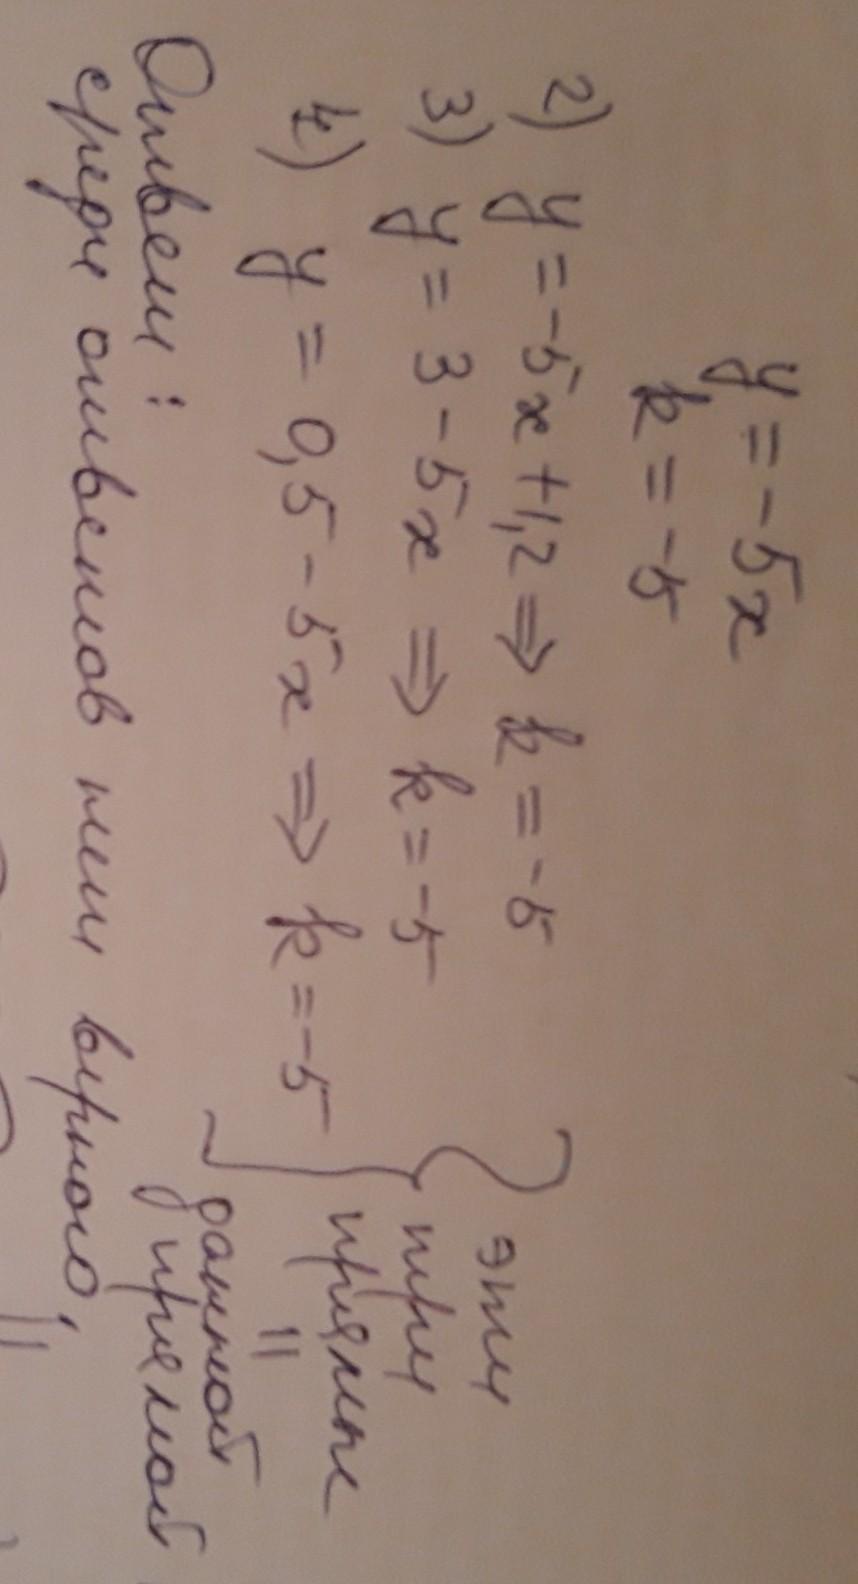 y = -5x
k = -5
2) y = -5x + 1,2 ⇒ k = -5
3) y = 3 - 5x ⇒ k = -5
4) y = 0,5 - 5x ⇒ k = -5
эти
три
прямые
||
данной
прямой
Ответ:
среди ответов нет верного,